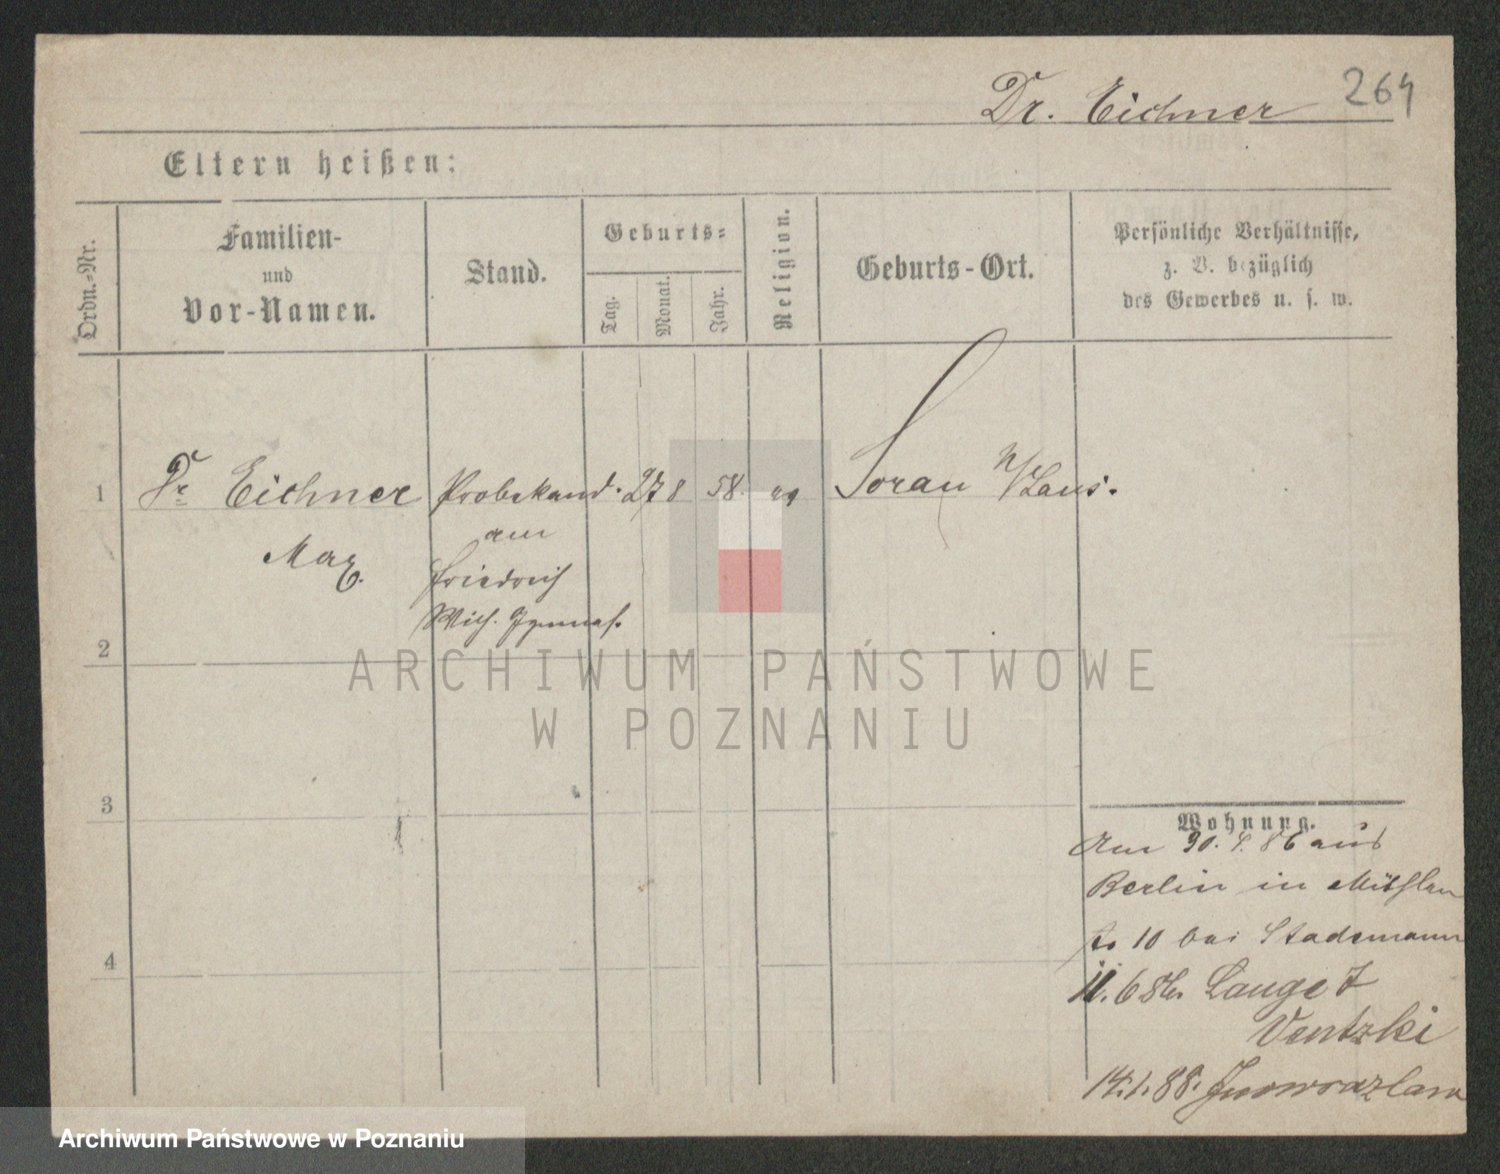 264
Dr. Eichner
Eltern heißen:
Ordn.-Nr.
Familien-
und
Vor-Namen.
Stand.
Geburts-
Tag.
Monat.
Jahr.
Religion.
Geburts-Ort.
Persönliche Verhältnisse,
z. B. bezüglich
des Gewerbes u. s. w.
1
Dr Eichner
Max.
Probekand.
am
Friedrich
Wilh. Gymnas.
27 8 58.
Sorau N/Laus.
2
3
4
ARCHIWUM PAŃSTWOWE
W POZNANIU
Wohnung.
Am 30. 86 aus
Berlin in
10 bei Stademann
Lange 7
Ventzki
14.1.88. Inowrazlaw
Archiwum Państwowe w Poznaniu